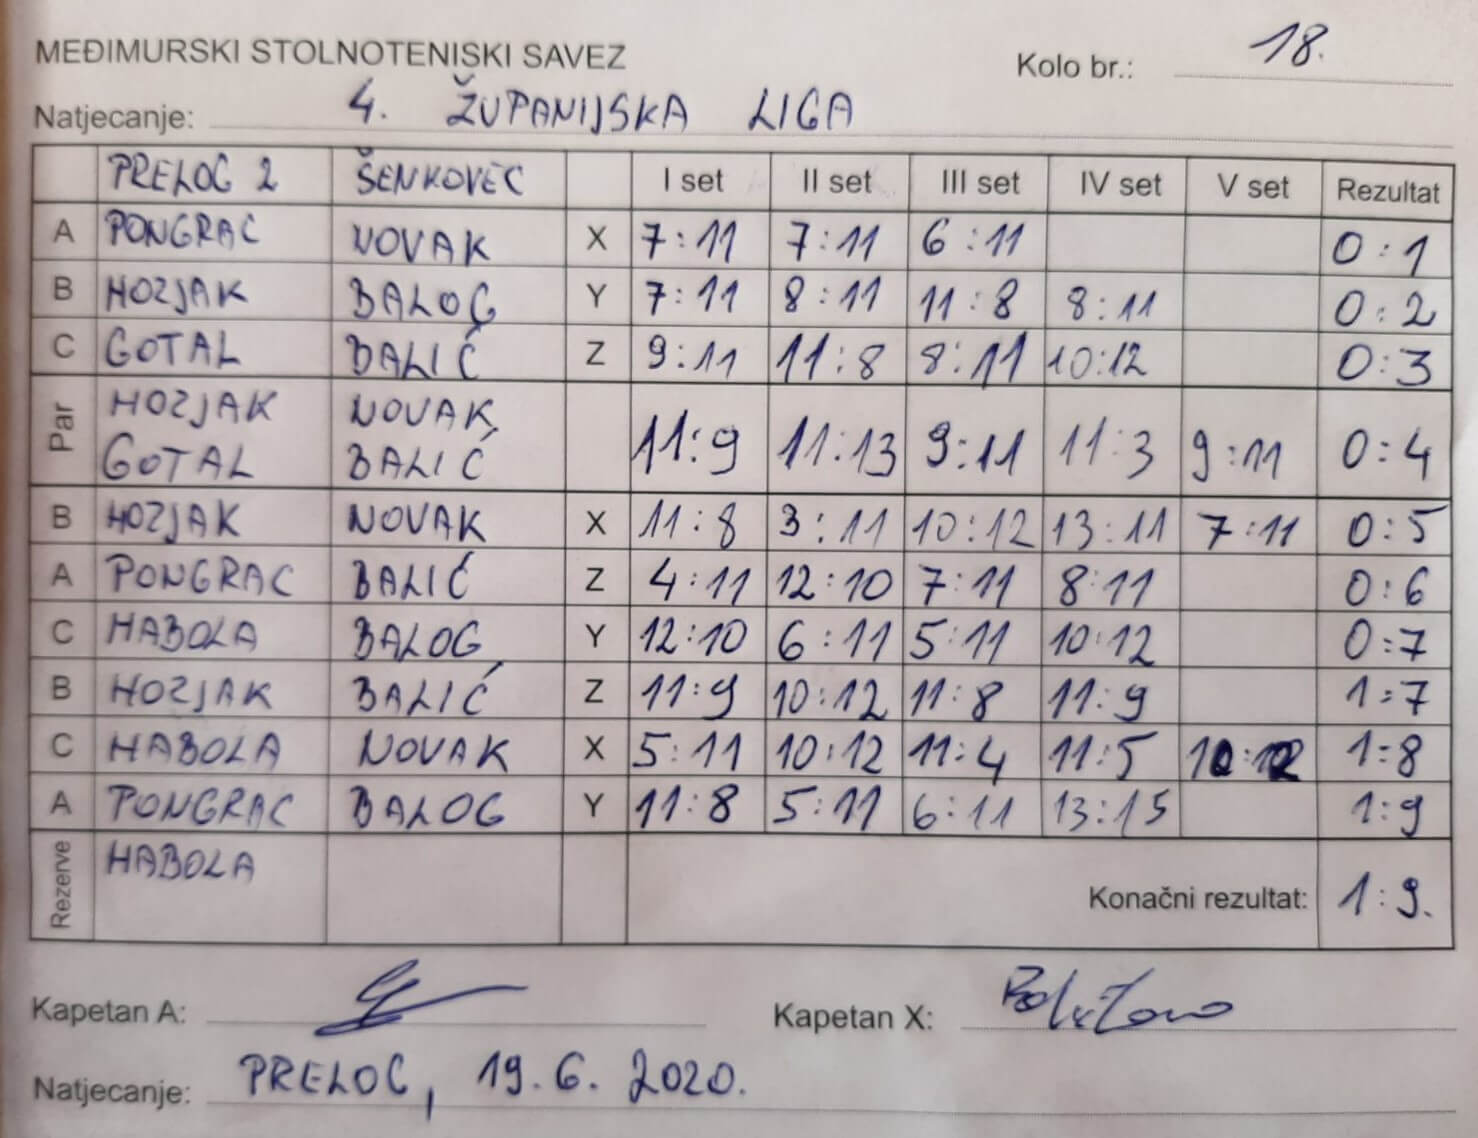 MEĐIMURSKI STOLNOTENISKI SAVEZ Kolo br.: 18.
Natjecanje: 4. ŽUPANIJSKA LIGA
PRELOG 2 ŠENKOVEC I set II set III set IV set V set Rezultat
A PONGRAC NOVAK X 7:11 7:11 6:11 0:1
B HOZJAK BALOG Y 7:11 8:11 11:8 8:11 0:2
C GOTAL BALIĆ Z 9:11 11:8 8:11 10:12 0:3
Par HOZJAK NOVAK
GOTAL BALIĆ 11:9 11:13 9:11 11:3 9:11 0:4
B HOZJAK NOVAK X 11:8 3:11 10:12 13:11 7:11 0:5
A PONGRAC BALIĆ Z 4:11 12:10 7:11 8:11 0:6
C HABOLA BALOG Y 12:10 6:11 5:11 10:12 0:7
B HOZJAK BALIĆ Z 11:9 10:12 11:8 11:9 1:7
C HABOLA NOVAK X 5:11 10:12 11:4 11:5 10:12 1:8
A PONGRAC BALOG Y 11:8 5:11 6:11 13:15 1:9
Rezerve HABOLA
Konačni rezultat: 1:9.
Kapetan A: Kapetan X:
Natjecanje: PRELOG, 19.6.2020.